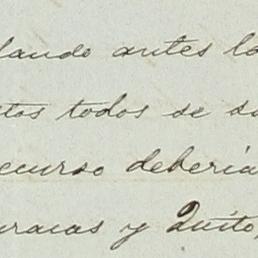 lando antes lo
tos todos se su
ecurso debería
aracas y Quito,